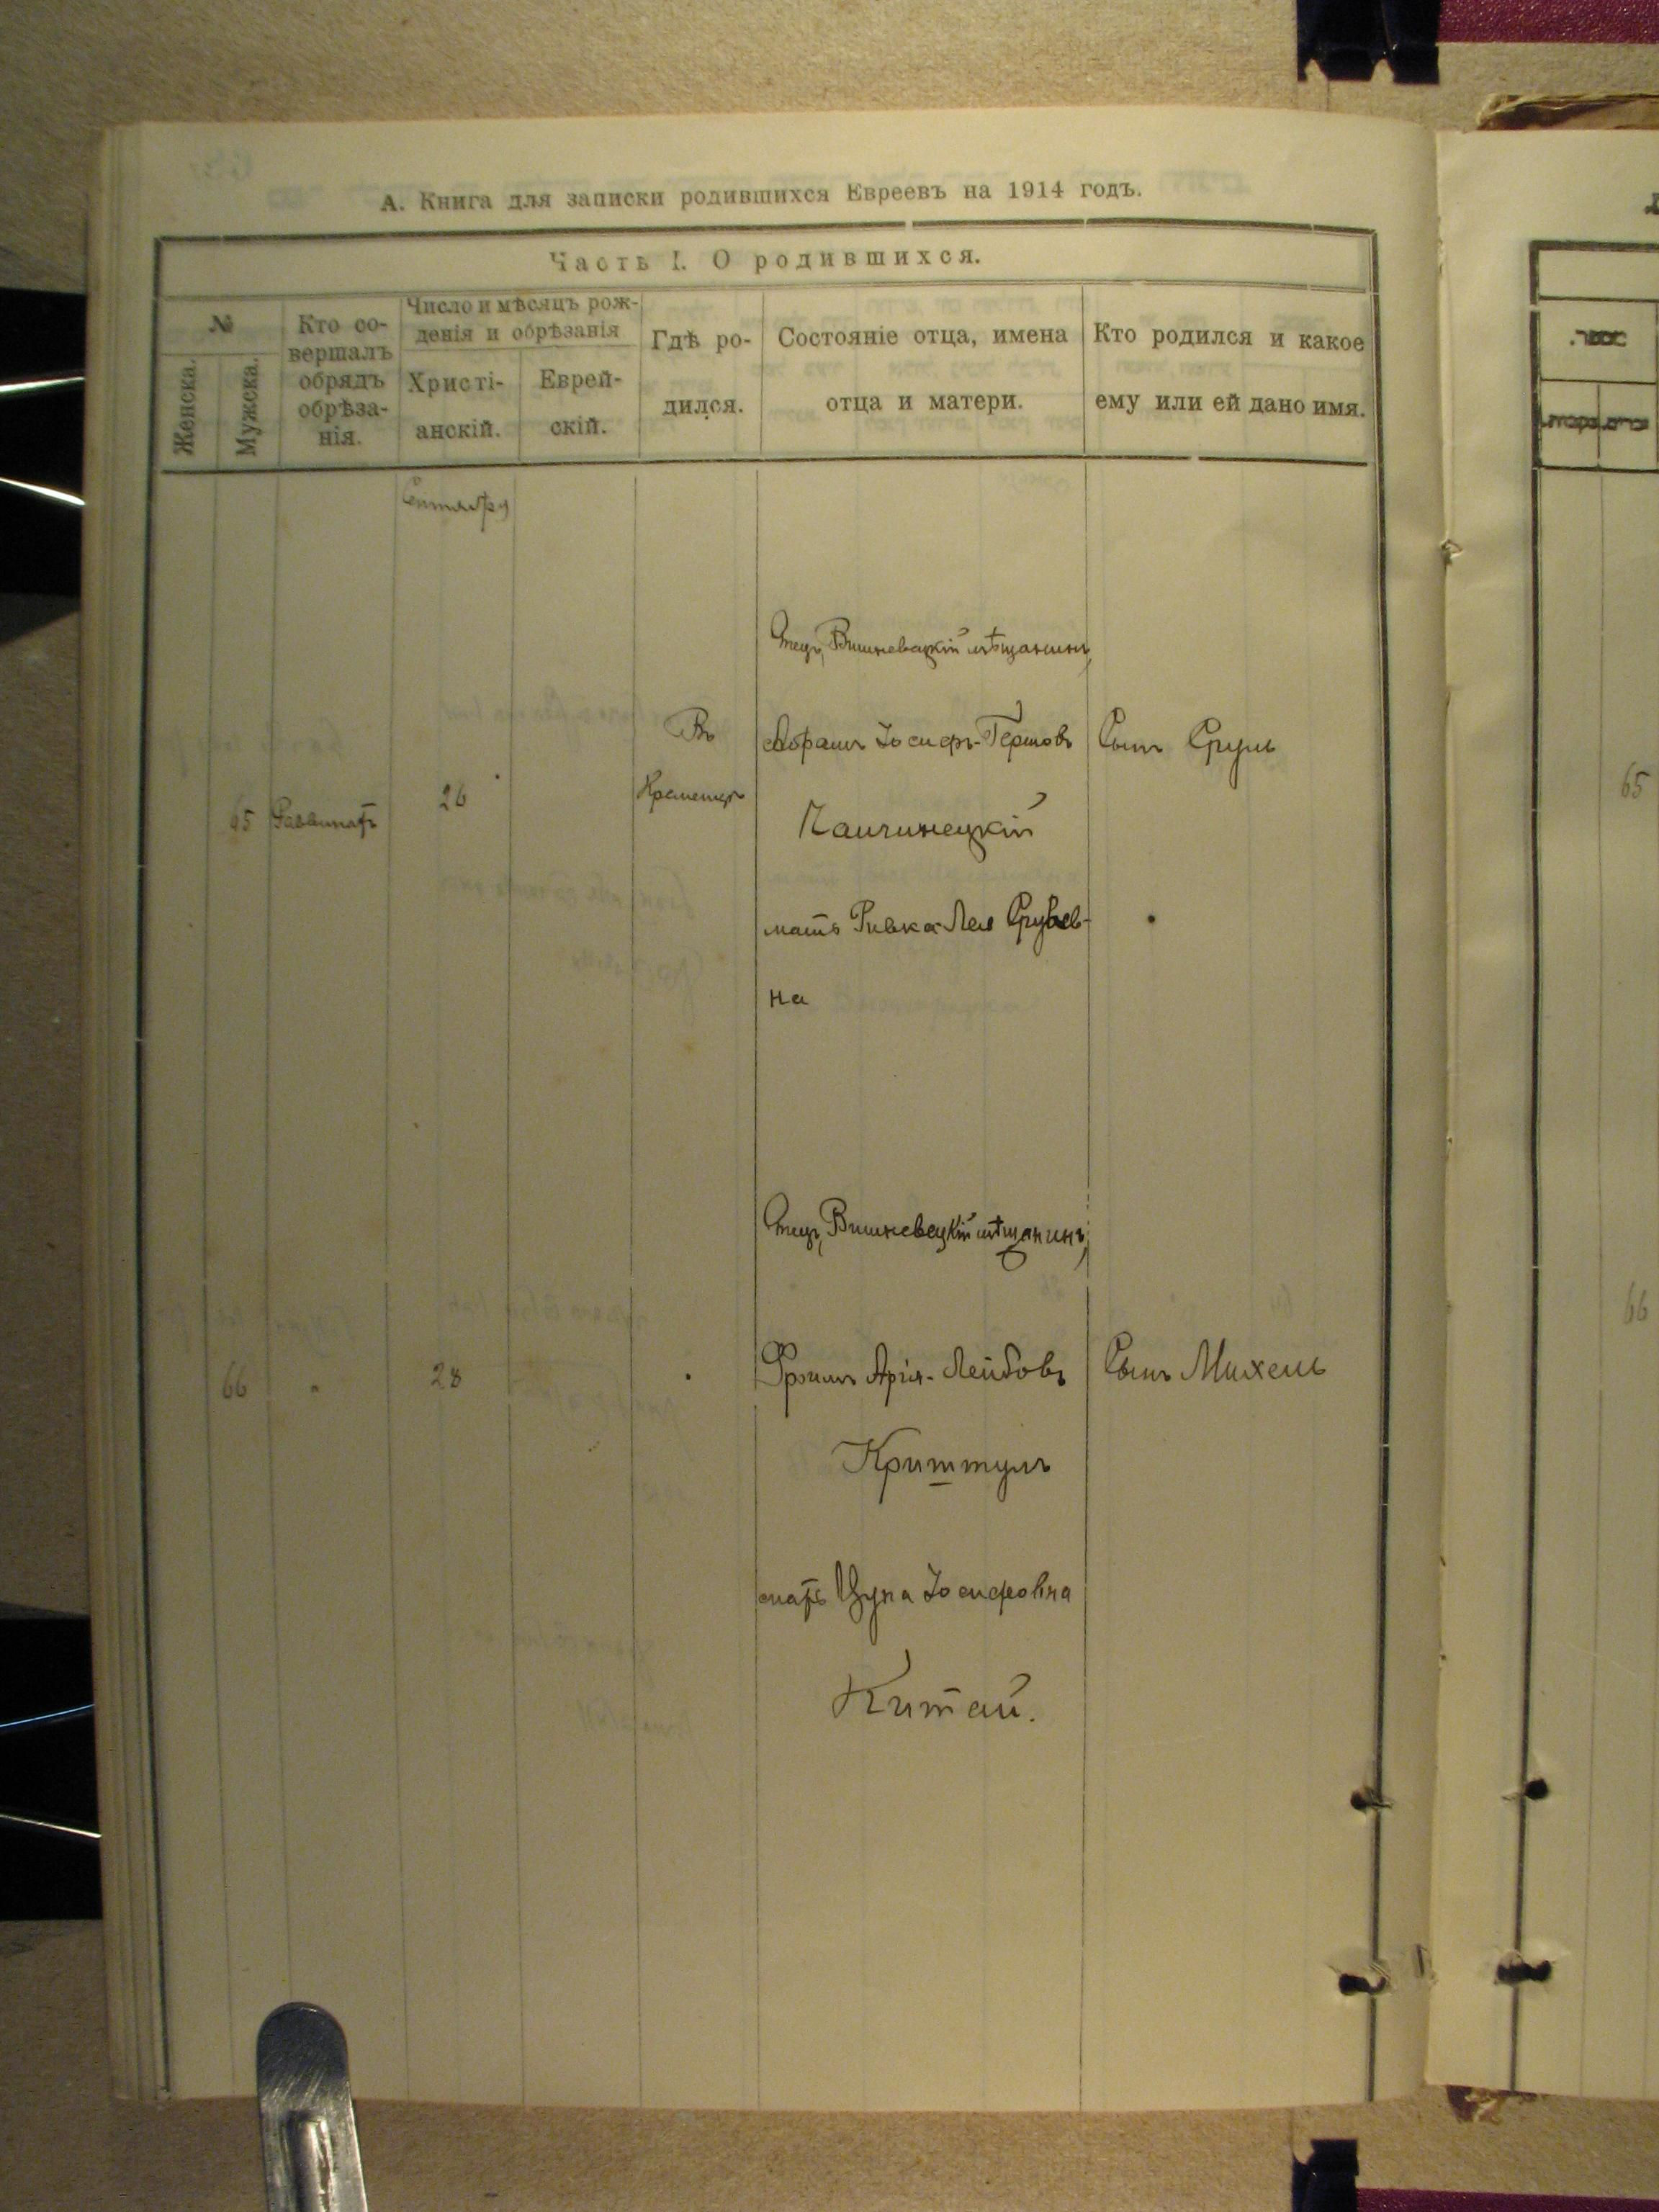 А. Книга для записки родившихся Евреевъ на 1914 годъ.
Часть I. О родившихся.
№
Женска.
Мужска.
Кто со-
вершалъ
обрядъ
обрѣза-
нія.
Число и мѣсяцъ рож-
денія и обрѣзанія
Христі-
анскій.
Еврей-
скій.
Гдѣ ро-
дился.
Состояніе отца, имена
отца и матери.
Кто родился и какое
ему или ей дано имя.
Сентября
65
Раввинатъ
26
Въ
Кременцѣ
Отецъ, Вишневецкій мѣщанинъ,
Абрамъ Іосифъ-Гершовъ
мать Ривка-Лея Срулев-
на
Сынъ Сруль
66
"
28
"
Отецъ, Вишневецкій мѣщанинъ,
Фроимъ Арія-Лейбовъ
Криштулъ
мать Цупа Іосифовна
Китай.
Сынъ Михель
65
66